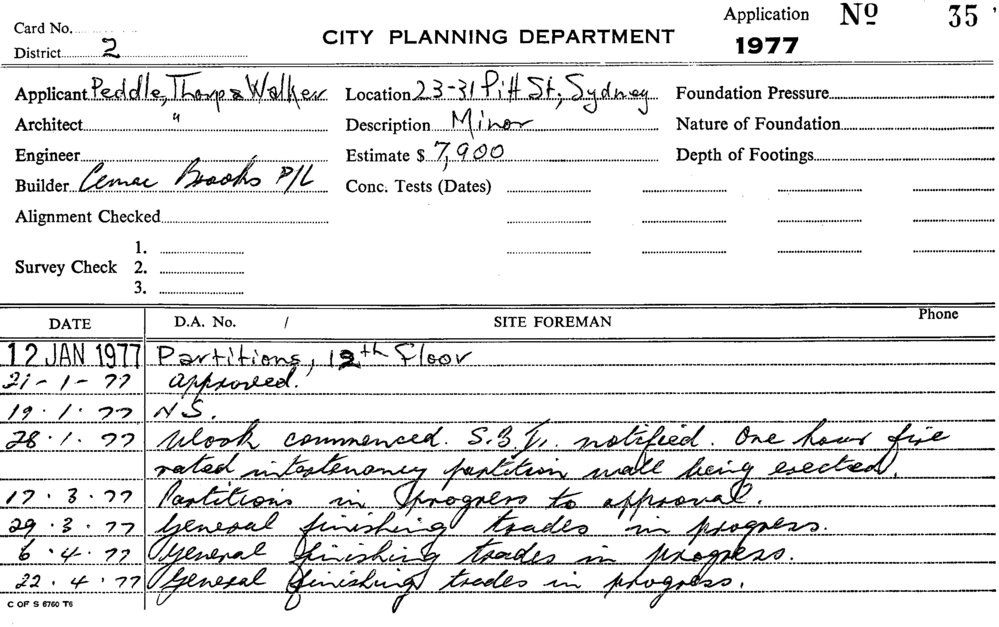 Card No.
District 2
CITY PLANNING DEPARTMENT
Application Nº 35
1977
Applicant Peddle, Thorp & Walker
Location 23-31 Pitt St, Sydney
Foundation Pressure
Architect "
Description Minor
Nature of Foundation
Engineer
Estimate $ 7,900
Depth of Footings
Builder Cemac Brooks P/L
Conc. Tests (Dates)
Alignment Checked
Survey Check
1.
2.
3.
DATE D.A. No. / SITE FOREMAN Phone
12 JAN 1977 Partitions, 12th Floor
21-1-77 approved.
19.1.77 N.S.
28.1.77 Work commenced. notified. One hour fire
rated intertenancy partition wall being erected.
17.3.77 Partitions in progress to approval.
29.3.77 General finishing trades in progress.
6.4.77 General finishing trades in progress.
22.4.77 General finishing trades in progress.
C OF S 6760 T6